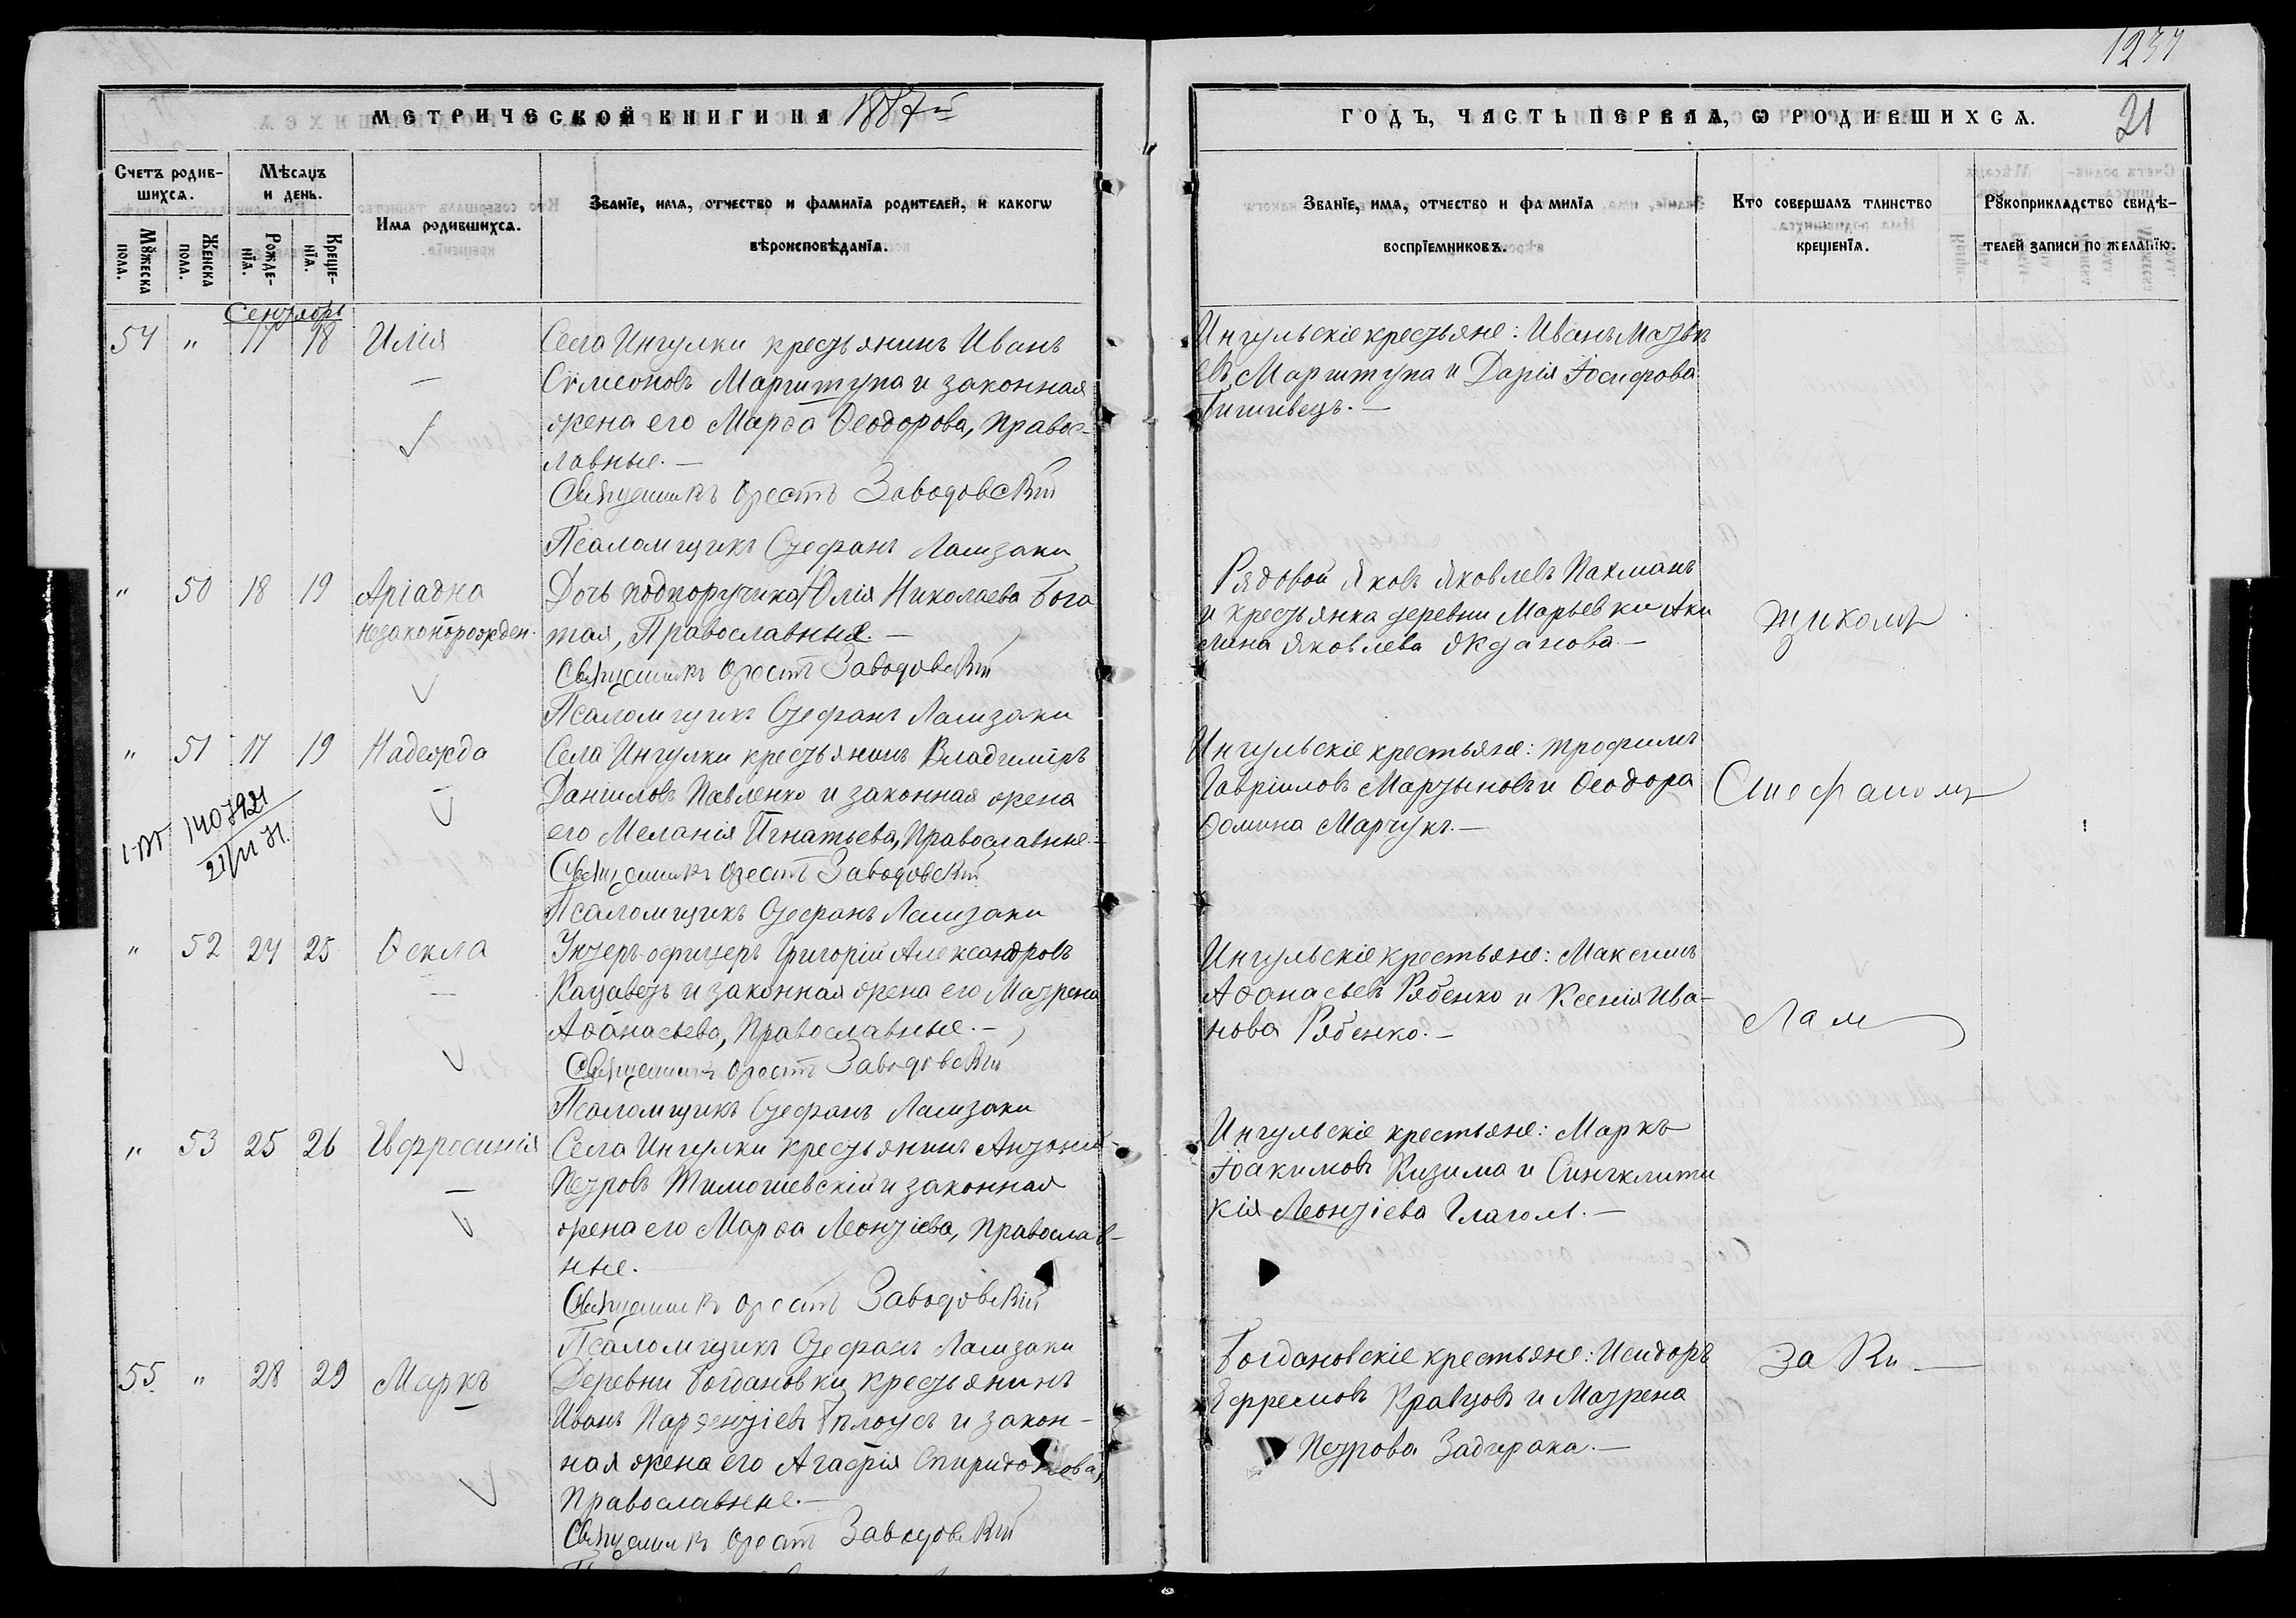 1237
МЕТРИЧЕСКОЙ КНИГИ НА 1887й
ГОДЪ, ЧАСТЬ ПЕРВАЯ, Ѡ РОДИВШИХСѦ.
21
Счетъ родив-
шихсѧ.
Мѣсѧцъ
и день.
Мꙋжеска
пола.
Женска
пола.
Рожде-
нїѧ.
Креще-
нїѧ.
Имѧ родившихсѧ.
Званїе, имѧ, отчество и фамилїѧ родителей, и какогѡ
вѣроисповѣданїѧ.
Званїе, имѧ, отчество и фамилїѧ
воспрїемниковъ.
Кто совершалъ таинство
крещенїѧ.
Рꙋкоприкладство свидѣ-
телей записи по желанїю.
Сентябрь
54 " 17 18 Илія
Села Ингулки крестьянинъ Иванъ
Сѵмеоновъ Марштупа и законная
жена его Марѳа Ѳеодорова, Правос-
лавные. —
Священникъ Орестъ Заводовскій
Псаломщикъ Стефанъ Ламзаки
Ингульскіе крестьяне: Иванъ Матвѣ
евъ Марштупа и Дарія Іосифова
" 50 18 19 Аріадна
незаконорожден.
Дочь подпоручика Юлія Николаева Бога
тая, Православныя. —
Священникъ Орестъ Заводовскій
Псаломщикъ Стефанъ Ламзаки
Рядовой Яковъ Яковлевъ Пахманъ
и крестьянка деревни Марьевки Аки
лина Яковлева —
щикомъ
" 51 17 19 Надежда
140792
21/VI 71.
Села Ингулки крестьянинъ Владимиръ
Даниловъ Павленко и законная жена
его Меланія Игнатьева, Православные. —
Священникъ Орестъ Заводовскій
Псаломщикъ Стефанъ Ламзаки
Ингульскіе крестьяне: Трофимъ
Гавріиловъ Мартыновъ и Ѳеодора
Ѳомина Марчукъ. —
Стефаномъ
" 52 24 25 Ѳекла
Унтеръ-офицеръ Григорій Александровъ
Кацавецъ и законная жена его Матрена
Аѳанасьева, Православные. —
Священникъ Орестъ Заводовскій
Псаломщикъ Стефанъ Ламзаки
Ингульскіе крестьяне: Максимъ
Аѳанасьевъ Рябенко и Ксенія Ива-
нова Рябенко. —
Лам
" 53 25 26 Евфросинія
Села Ингулки крестьянинъ Антоній
Петровъ Тимошевскій и законная
жена его Марѳа Леонтіева, Православ-
ные.
Священникъ Орестъ Заводовскій
Псаломщикъ Стефанъ Ламзаки
Ингульскіе крестьяне: Маркъ
Іоакимовъ Кизима и Синклити
кія Леонтіева Глаголъ. —
55. " 28 29 Маркъ
Деревни Богдановки крестьянинъ
Иванъ Парѳентіевъ Бѣлоусъ и закон-
ная жена его Агафія Спиридонова,
Православные. —
Священникъ Орестъ Заводовскій
Богдановскіе крестьяне: Исидоръ
Ефремовъ Кравцовъ и Матрена
Петрова Задирака. —
заки —